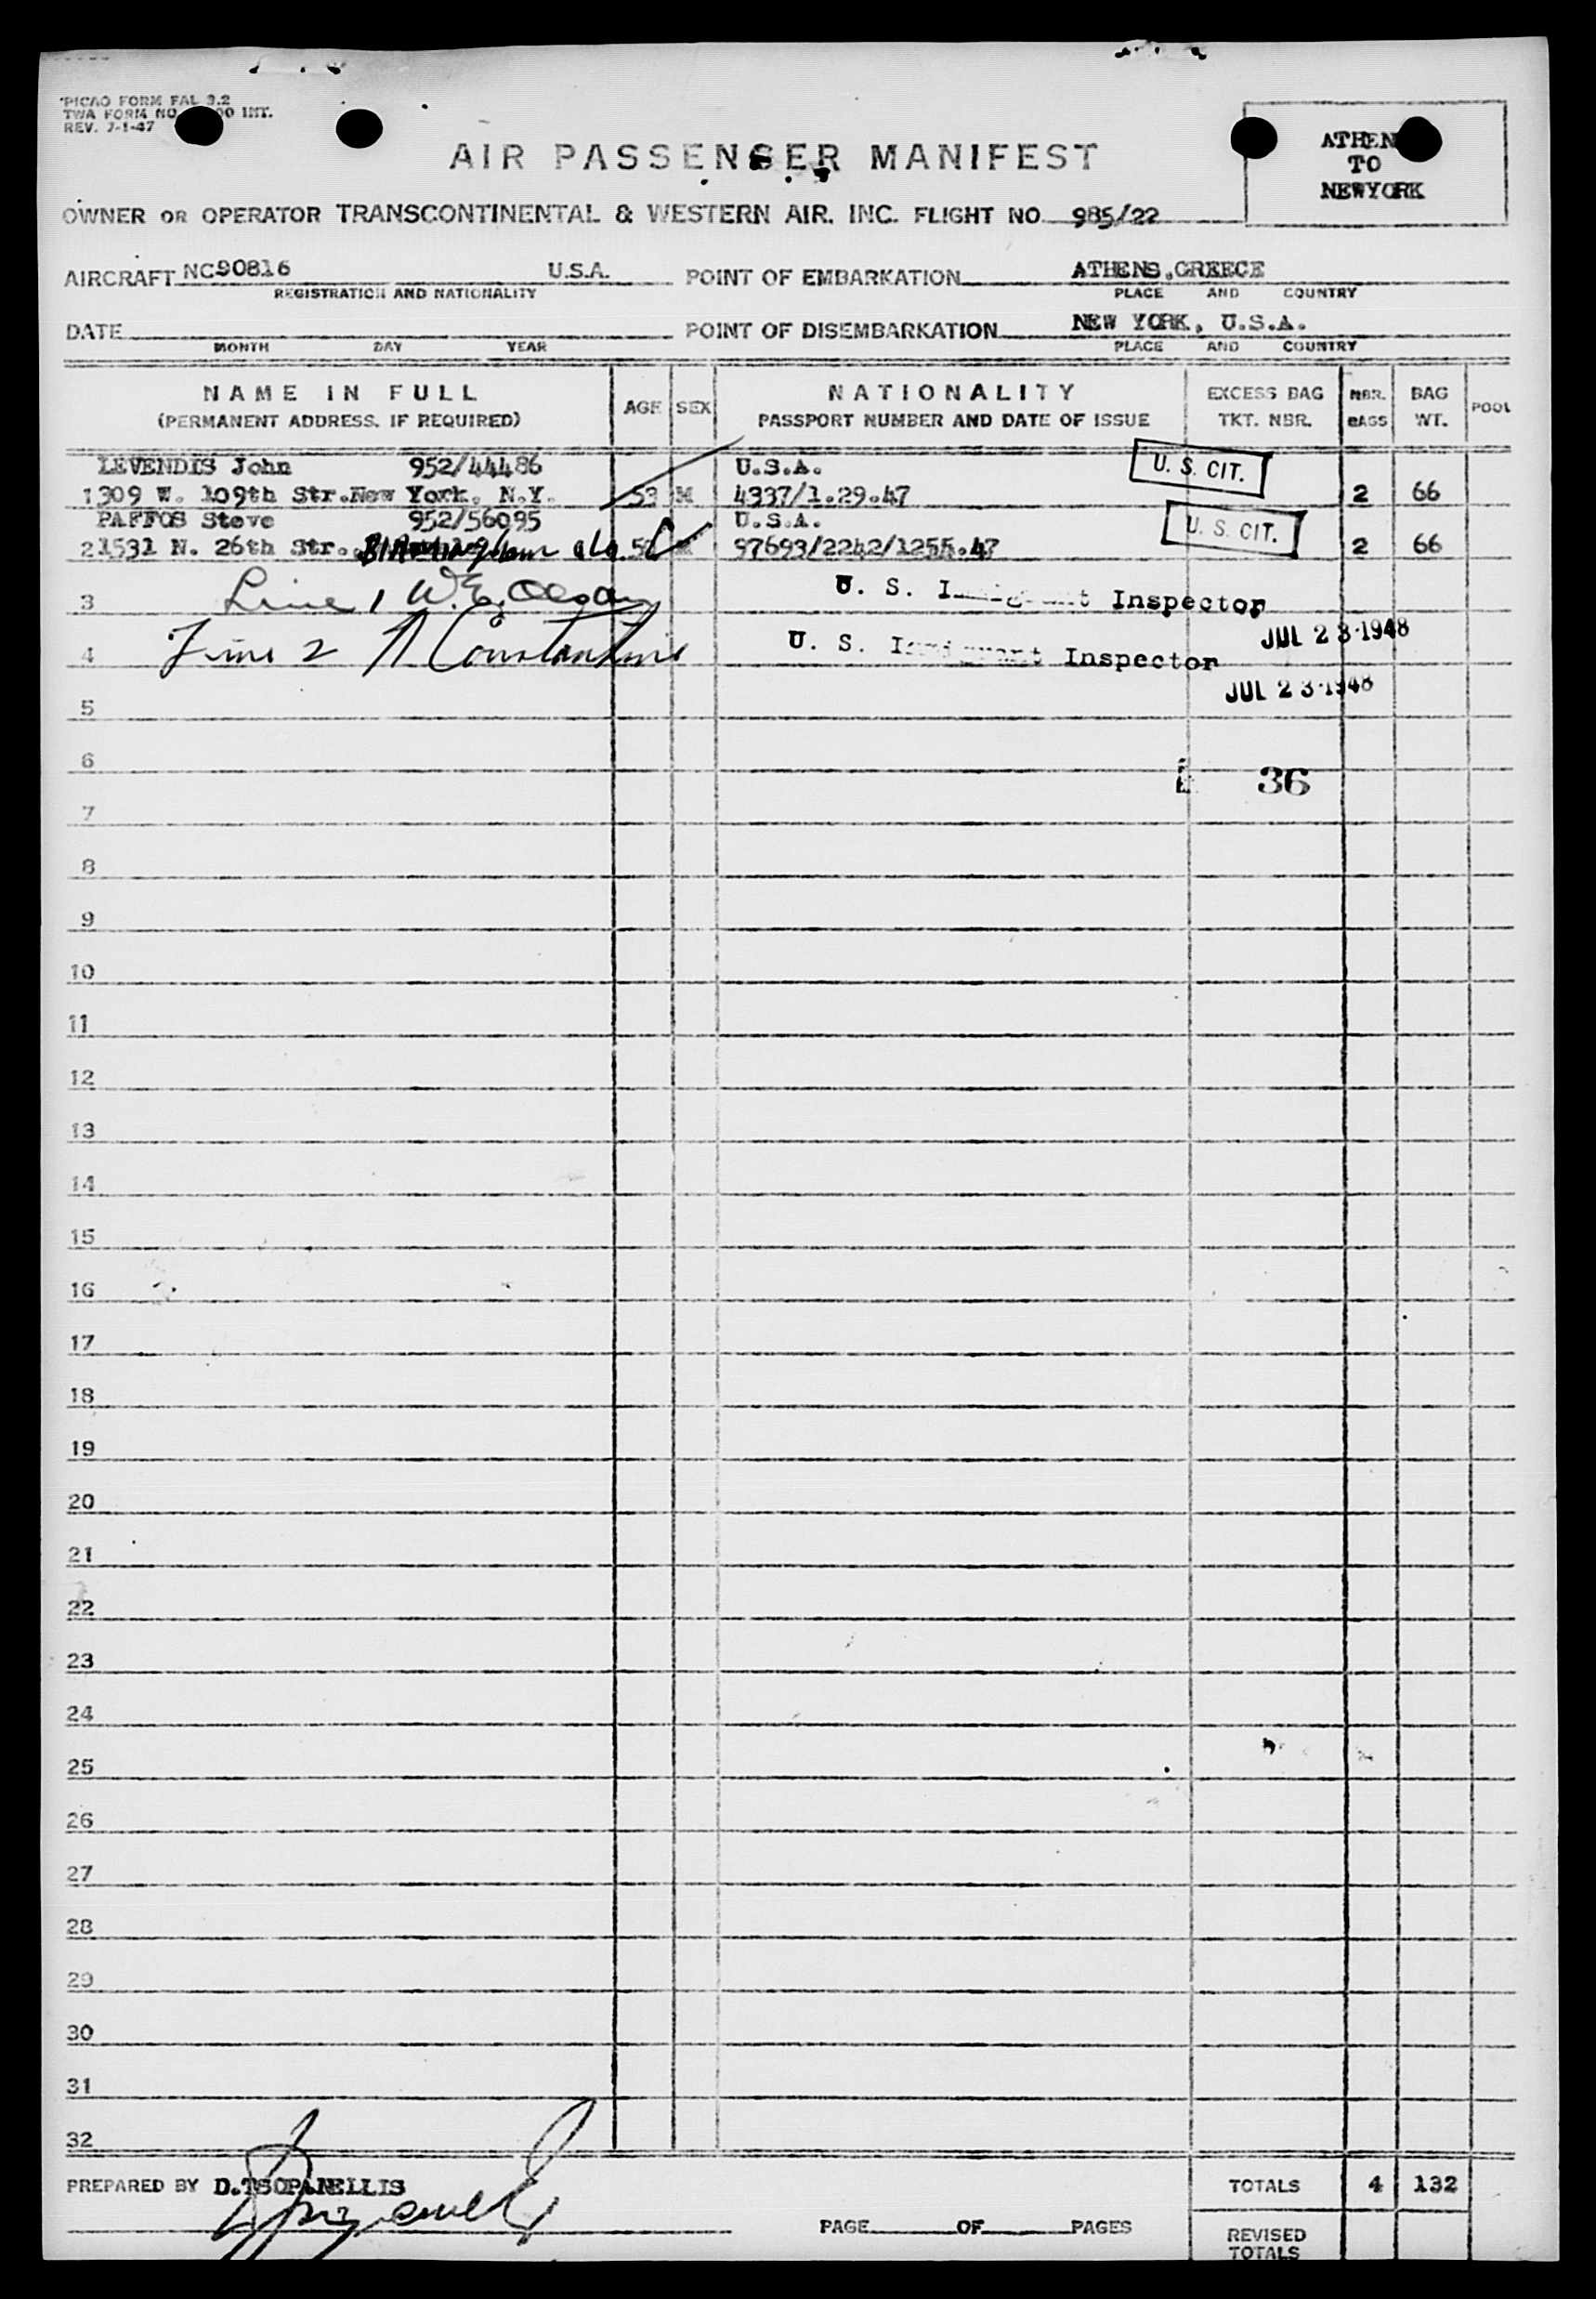 PICAO FORM FAL 3.2
TWA FORM NO. 00 INT.
REV. 7-1-47
AIR PASSENGER MANIFEST
ATHEN
TO
NEWYORK
OWNER OR OPERATOR TRANSCONTINENTAL & WESTERN AIR. INC. FLIGHT NO. 985/22
AIRCRAFT NC90816 U.S.A. POINT OF EMBARKATION ATHENS,GREECE
REGISTRATION AND NATIONALITY PLACE AND COUNTRY
DATE POINT OF DISEMBARKATION NEW YORK, U.S.A.
MONTH DAY YEAR PLACE AND COUNTRY
NAME IN FULL AGE SEX NATIONALITY EXCESS BAG NBR. BAG POOL
(PERMANENT ADDRESS. IF REQUIRED) PASSPORT NUMBER AND DATE OF ISSUE TKT. NBR. BAGS WT.
LEVENDIS John 952/44486 U.S.A. U. S. CIT.
1 309 W. 109th Str.New York, N.Y. 53 M 4337/1.29.47 2 66
PAFFOS Steve 952/56095 U.S.A. U. S. CIT.
2 1531 N. 26th Str. Birmingham Ala. 97693/2242/1255.47 2 66
3 Line 1 W.E. Olson U. S. Inspector
JUL 23 1948
4 Line 2 N Constantine U. S. Immigrant Inspector
JUL 23 1948
5
6
36
7
8
9
10
11
12
13
14
15
16
17
18
19
20
21
22
23
24
25
26
27
28
29
30
31
32
PREPARED BY D.TSOPANELLIS TOTALS 4 132
PAGE OF PAGES
REVISED
TOTALS